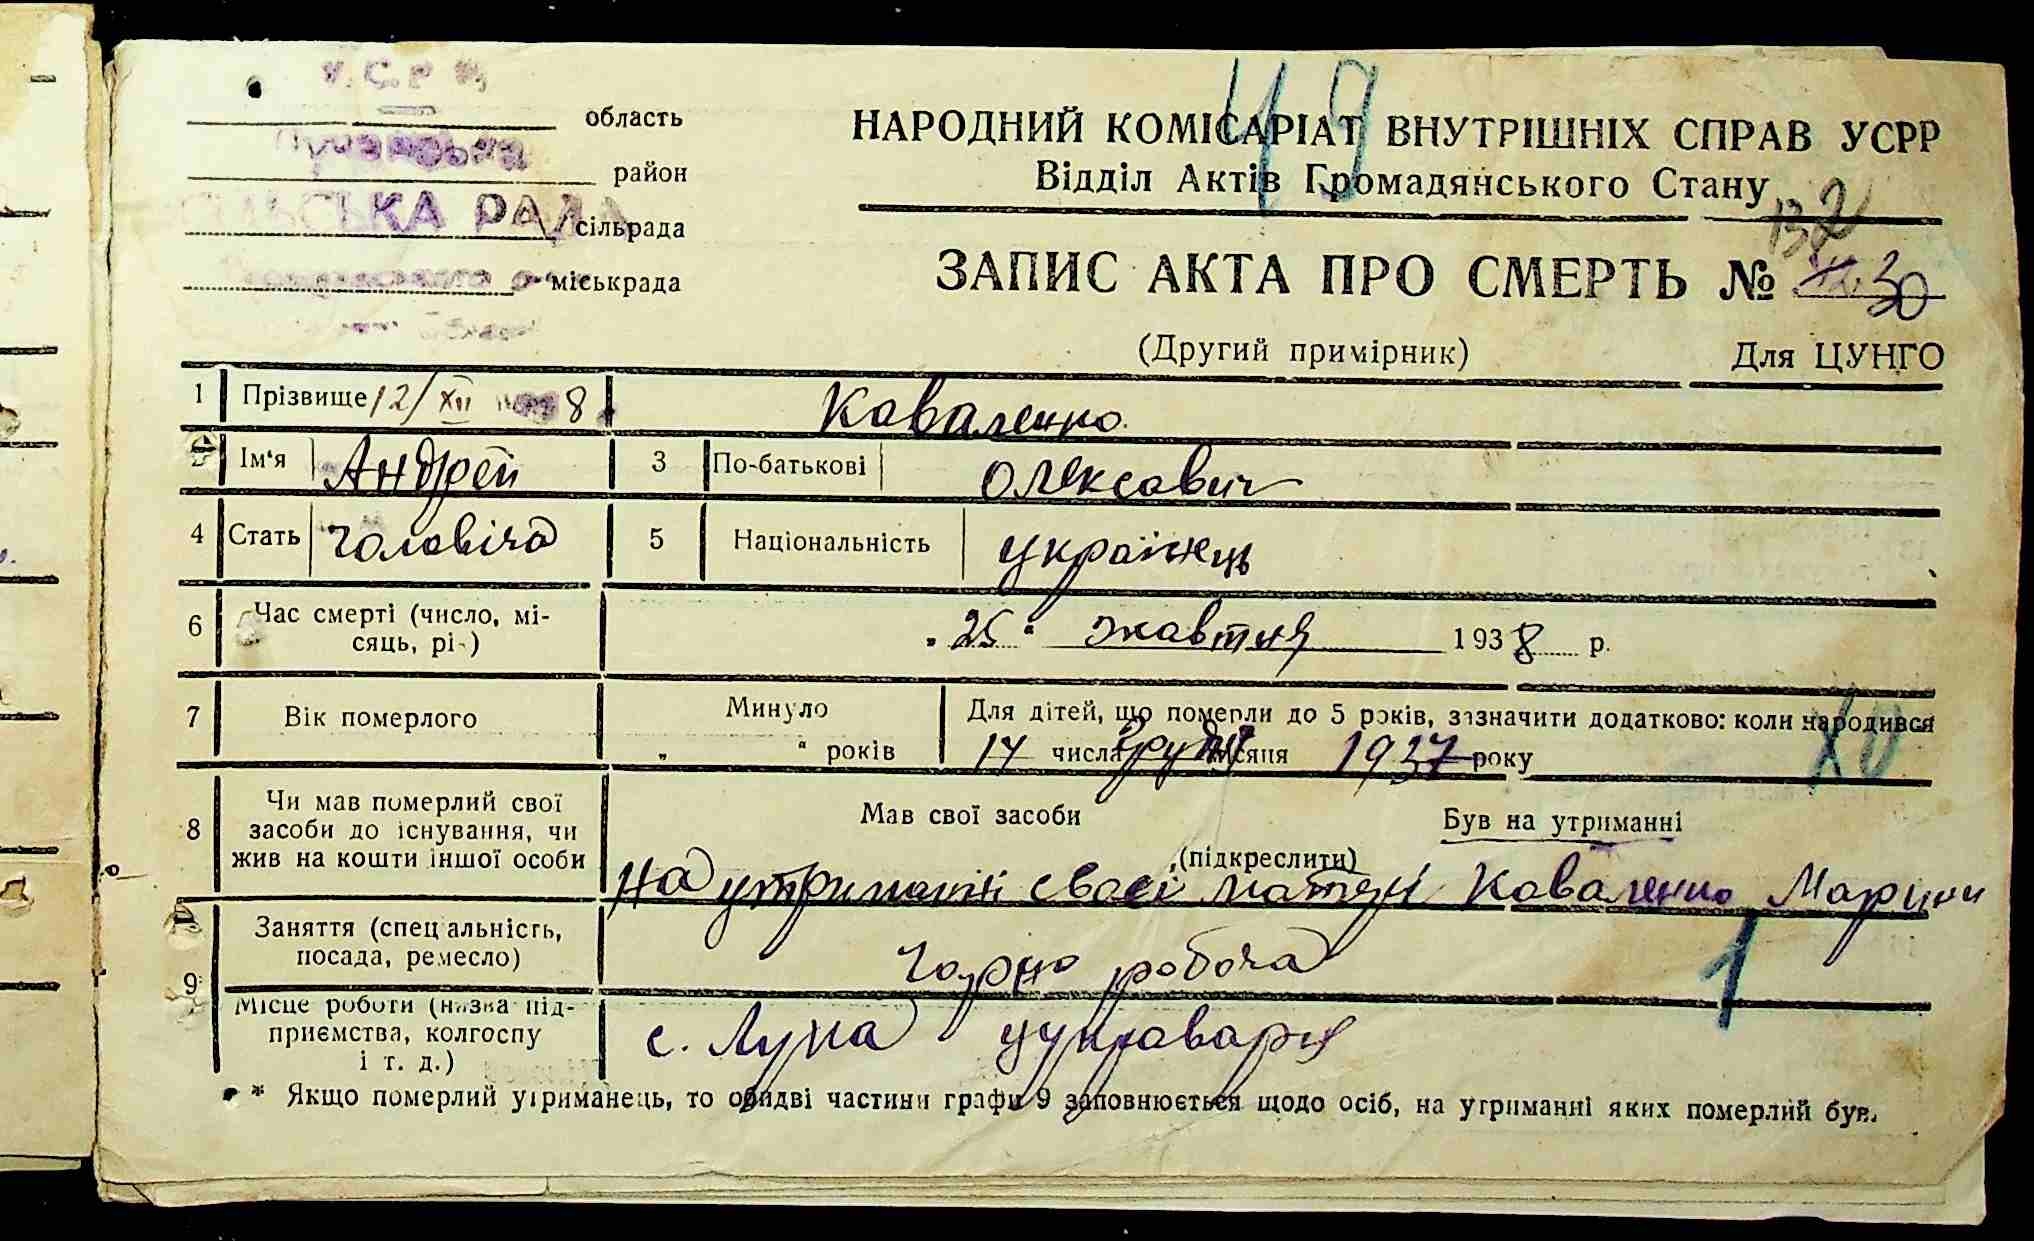 У.С.Р.Р.
область
район
СІЛЬСЬКА РАДА
сільрада
міськрада
49
НАРОДНИЙ КОМІСАРІАТ ВНУТРІШНІХ СПРАВ УСРР
Відділ Актів Громадянського Стану
132
ЗАПИС АКТА ПРО СМЕРТЬ № 30
(Другий примірник) Для ЦУНГО
1 Прізвище 12/XII 8 Коваленко
Ім'я Андрей 3 По-батькові Олексович
4 Стать чоловіча 5 Національність українець
6 Час смерті (число, мі-
сяць, рі-) „25" жовтня 1938 р.
7 Вік померлого Минуло „ " років
Для дітей, що померли до 5 років, зазначити додатково: коли народився
14 числа грудня місяця 1937 року
8 Чи мав померлий свої
засоби до існування, чи
жив на кошти іншої особи
Мав свої засоби Був на утриманні
(підкреслити)
на утриманні своєї матері Коваленко Марини
9 Заняття (спеціальність,
посада, ремесло) чорно робоча
1
Місце роботи (назва під-
приємства, колгоспу
і т. д.) с. Лука цукроварня
* Якщо померлий утриманець, то обидві частини графи 9 заповнюється щодо осіб, на утриманні яких померлий був.